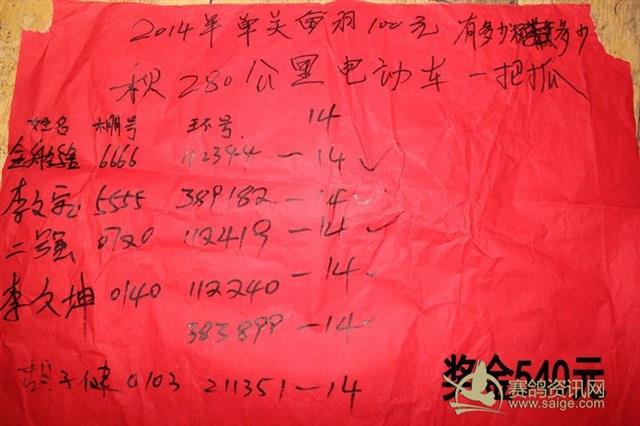 2014年单关每羽100元 有多少 多少
秋280公里电动车一把抓
姓名 棚号 环号 14
6666 112344-14
李文宝 5555 389182-14
二强 0720 112419-14
李文坤 0140 112240-14
383899-14
胡子健 0103 211351-14
奖金540元
赛鸽资讯网
www.saige.com